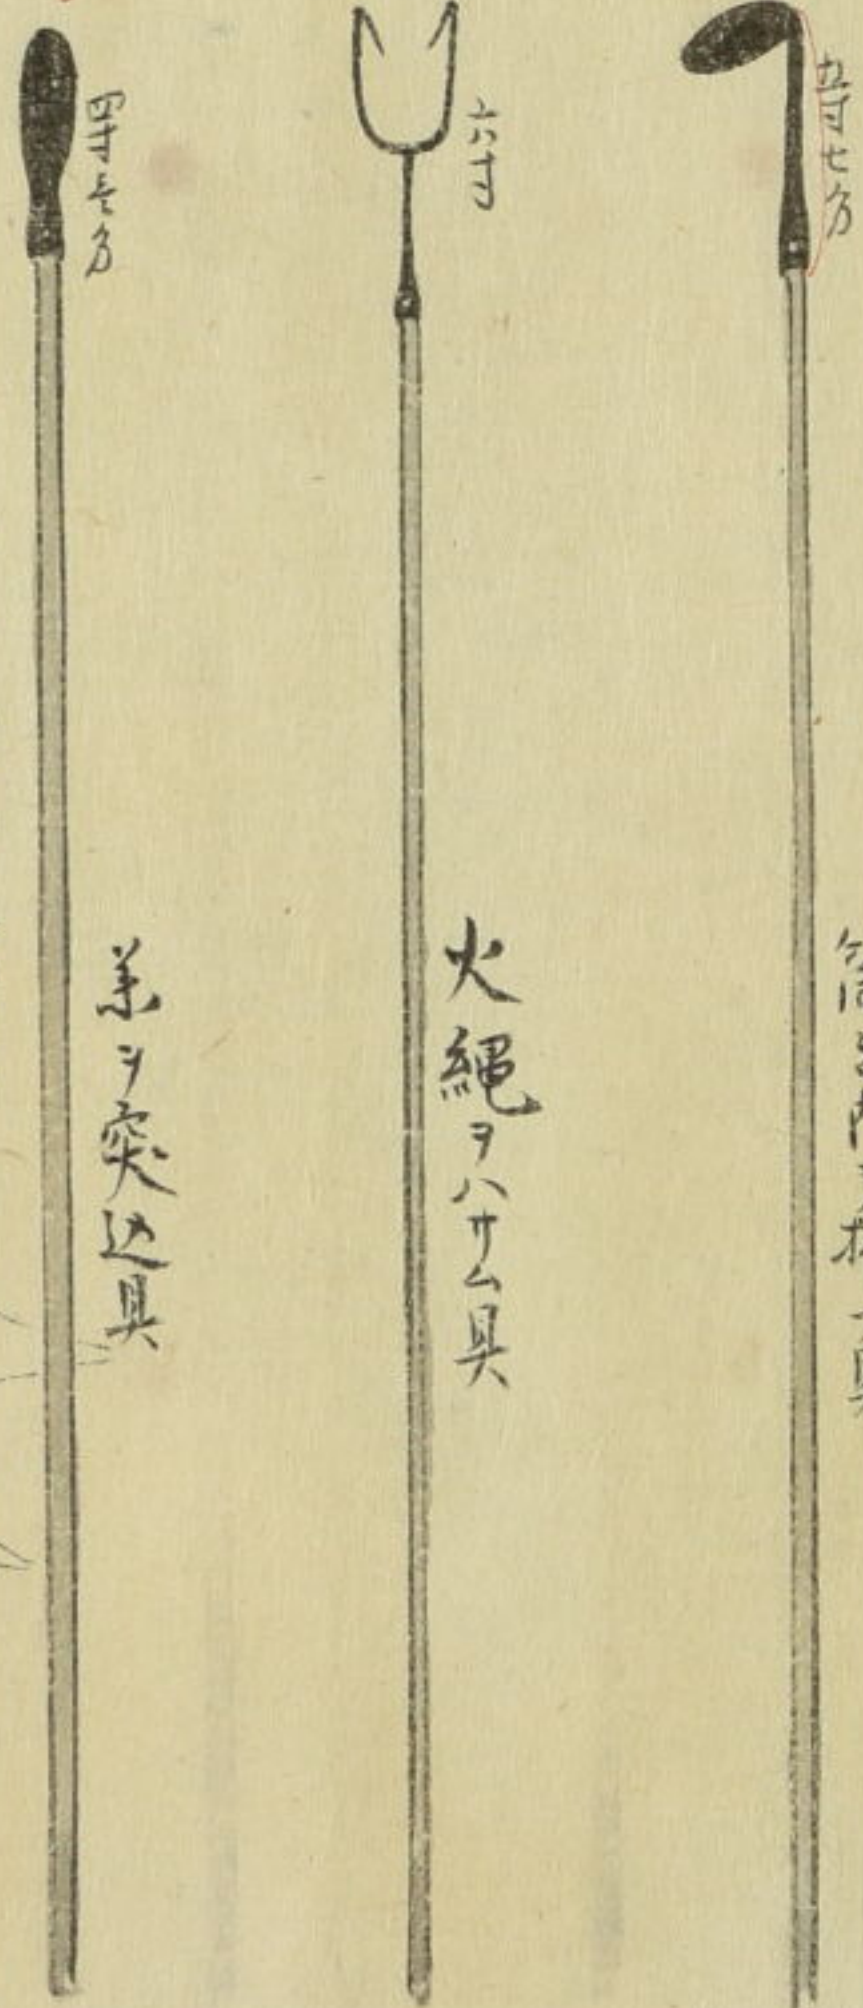 五寸七分
六寸
火縄ヲハサム具
四寸壱分
薬ヲ突込具